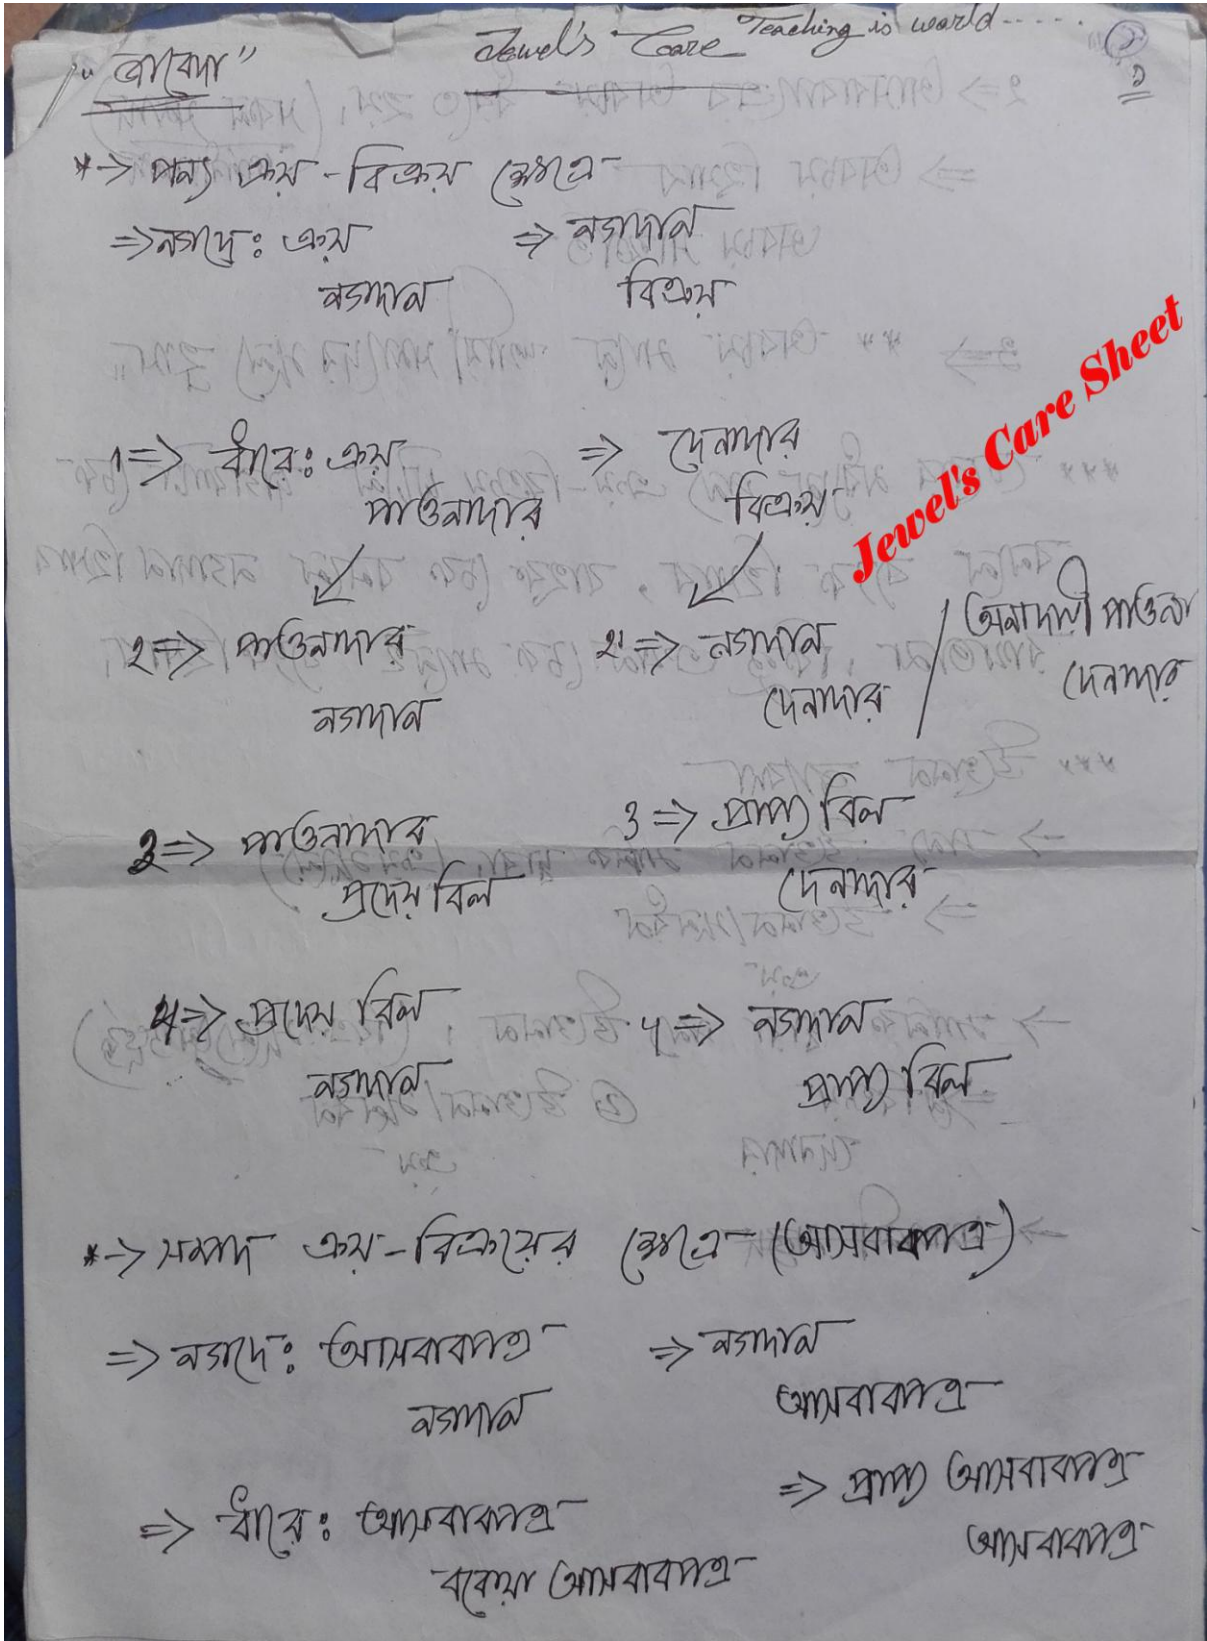 Jewel's Care Teaching is world.....
"জাবেদা"
১
*→ পন্য ক্রয় - বিক্রয় ক্ষেত্রে
⇒ নগদে: ক্রয় ⇒ নগদান
নগদান বিক্রয়
Jewel's Care Sheet
১⇒ ধারে: ক্রয় ⇒ দেনাদার
পাওনাদার বিক্রয়
২⇒ পাওনাদার ২⇒ নগদান / অনাদায়ী পাওনা
নগদান দেনাদার দেনাদার
3⇒ পাওনাদার 3⇒ প্রাপ্য বিল
প্রদেয় বিল দেনাদার
4⇒ প্রদেয় বিল 4⇒ নগদান
নগদান প্রাপ্য বিল
*→ সম্পদ ক্রয় - বিক্রয়ের ক্ষেত্রে (আসবাবপত্র)
⇒ নগদে: আসবাবপত্র ⇒ নগদান
নগদান আসবাবপত্র
⇒ ধারে: আসবাবপত্র ⇒ প্রাপ্য আসবাবপত্র
বকেয়া আসবাবপত্র আসবাবপত্র